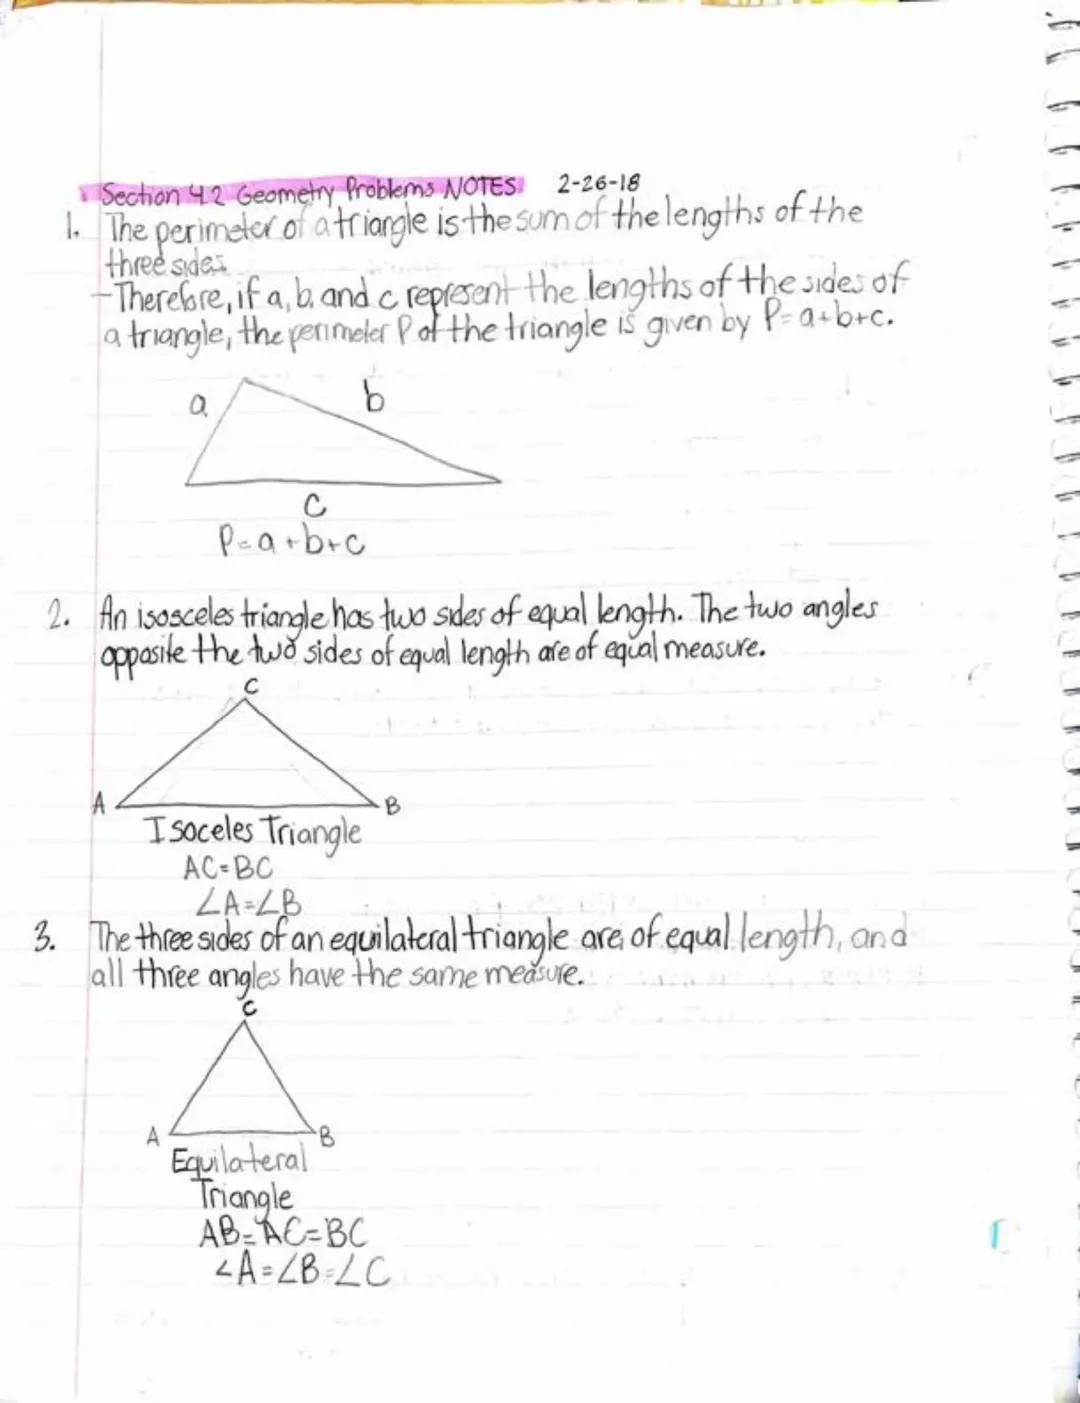 Section 4.2 Geometry Problems NOTES 2-26-18
1. The perimeter of a triangle is the sum of the lengths of the
three sides
-Therefore, if a, b, and c represent the lengths of the sides of
a triangle, the perimeter P of the triangle is given by P=a+b+c.
a b
c
P=a+b+c
2. An isosceles triangle has two sides of equal length. The two angles
opposite the two sides of equal length are of equal measure.
C
A B
Isoceles Triangle
AC=BC
∠A=∠B
3. The three sides of an equilateral triangle are of equal length, and
all three angles have the same measure.
C
A B
Equilateral
Triangle
AB=AC=BC
∠A=∠B=∠C